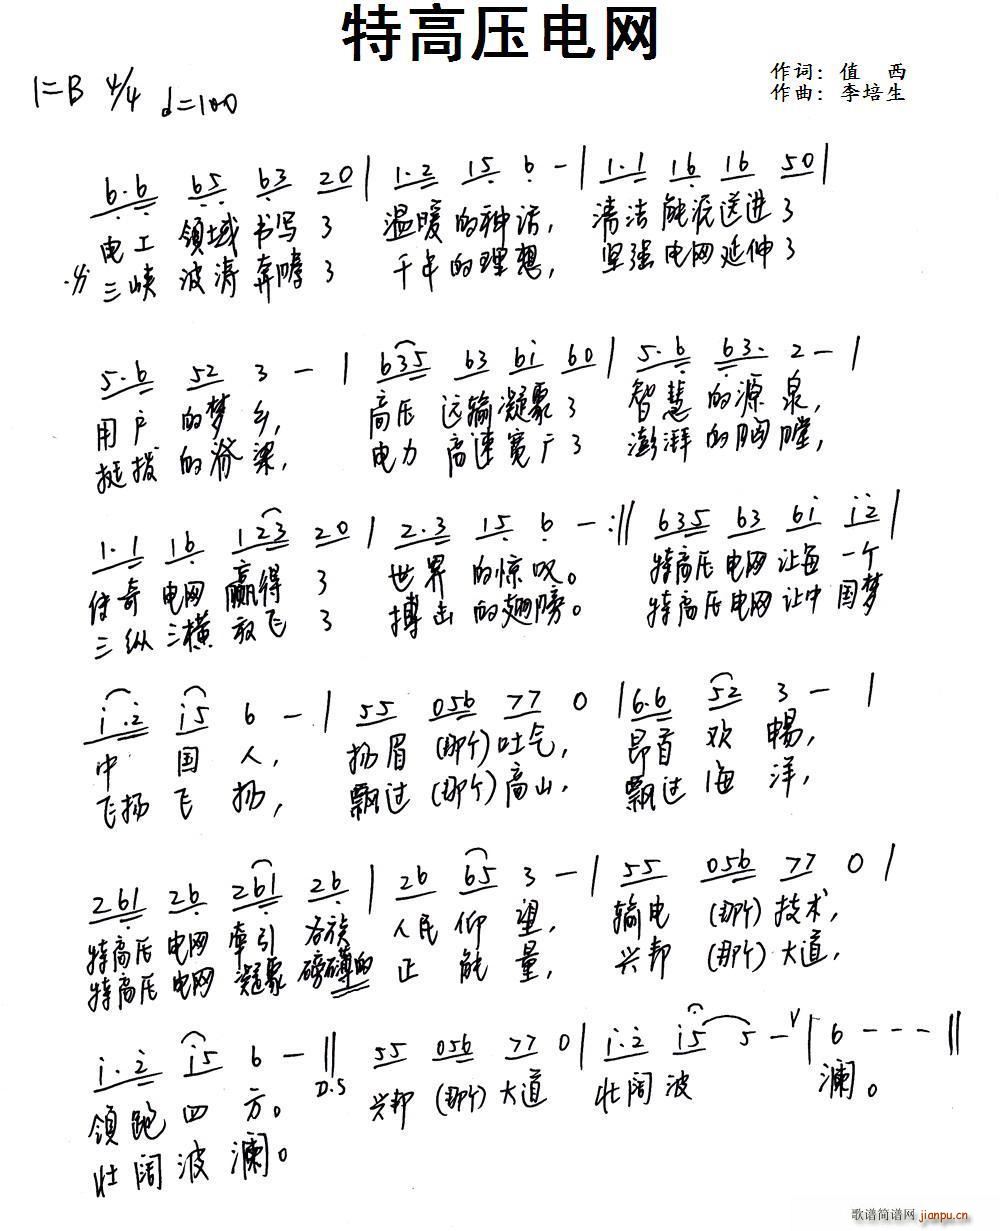 特高压电网
作词：值 西
作曲：李培生
1=B 4/4 ♩=100
6·6 65 63 20 | 1·2 15 6 - | 1·1 16 16 50 |
电工 领域 书写 了 温暖 的神话， 清洁 能源 送进 了
三峡 波涛 奔嚎 了 千年 的理想， 坚强 电网 延伸 了
5·6 52 3 - | 635 63 6i 60 | 5·6 63· 2 - |
用户 的梦 乡， 高压 远输 凝聚 了 智慧 的源 泉，
挺拔 的脊 梁， 电力 高速 宽广 了 澎湃 的胸 膛，
1·1 16 123 20 | 2·3 15 6 - :‖ 635 63 6i i2 |
传奇 电网 赢得 了 世界 的惊叹。 特高压 电网 让每 一个
三纵 三横 放飞 了 搏击 的翅膀。 特高压 电网 让中 国梦
i·2 i5 6 - | 55 056 77 0 | 6·6 52 3 - |
中 国 人， 扬眉 (那个) 吐气， 昂首 欢 畅，
飞扬 飞 扬， 飘过 (那个) 高山， 飘过 海 洋，
261 26 261 26 | 26 65 3 - | 55 056 77 0 |
特高压 电网 牵引 各族 人民 仰 望， 输电 (那个) 技术，
特高压 电网 凝聚 磅礴的 正 能 量， 兴邦 (那个) 大道，
i·2 i5 6 - ‖ D.S 55 056 77 0 | i·2 i5 5 - V | 6 - - - ‖
领跑 四 方。 兴邦 (那个) 大道 壮阔 波 澜。
壮阔 波 澜。
歌谱简谱网
jianpu.cn